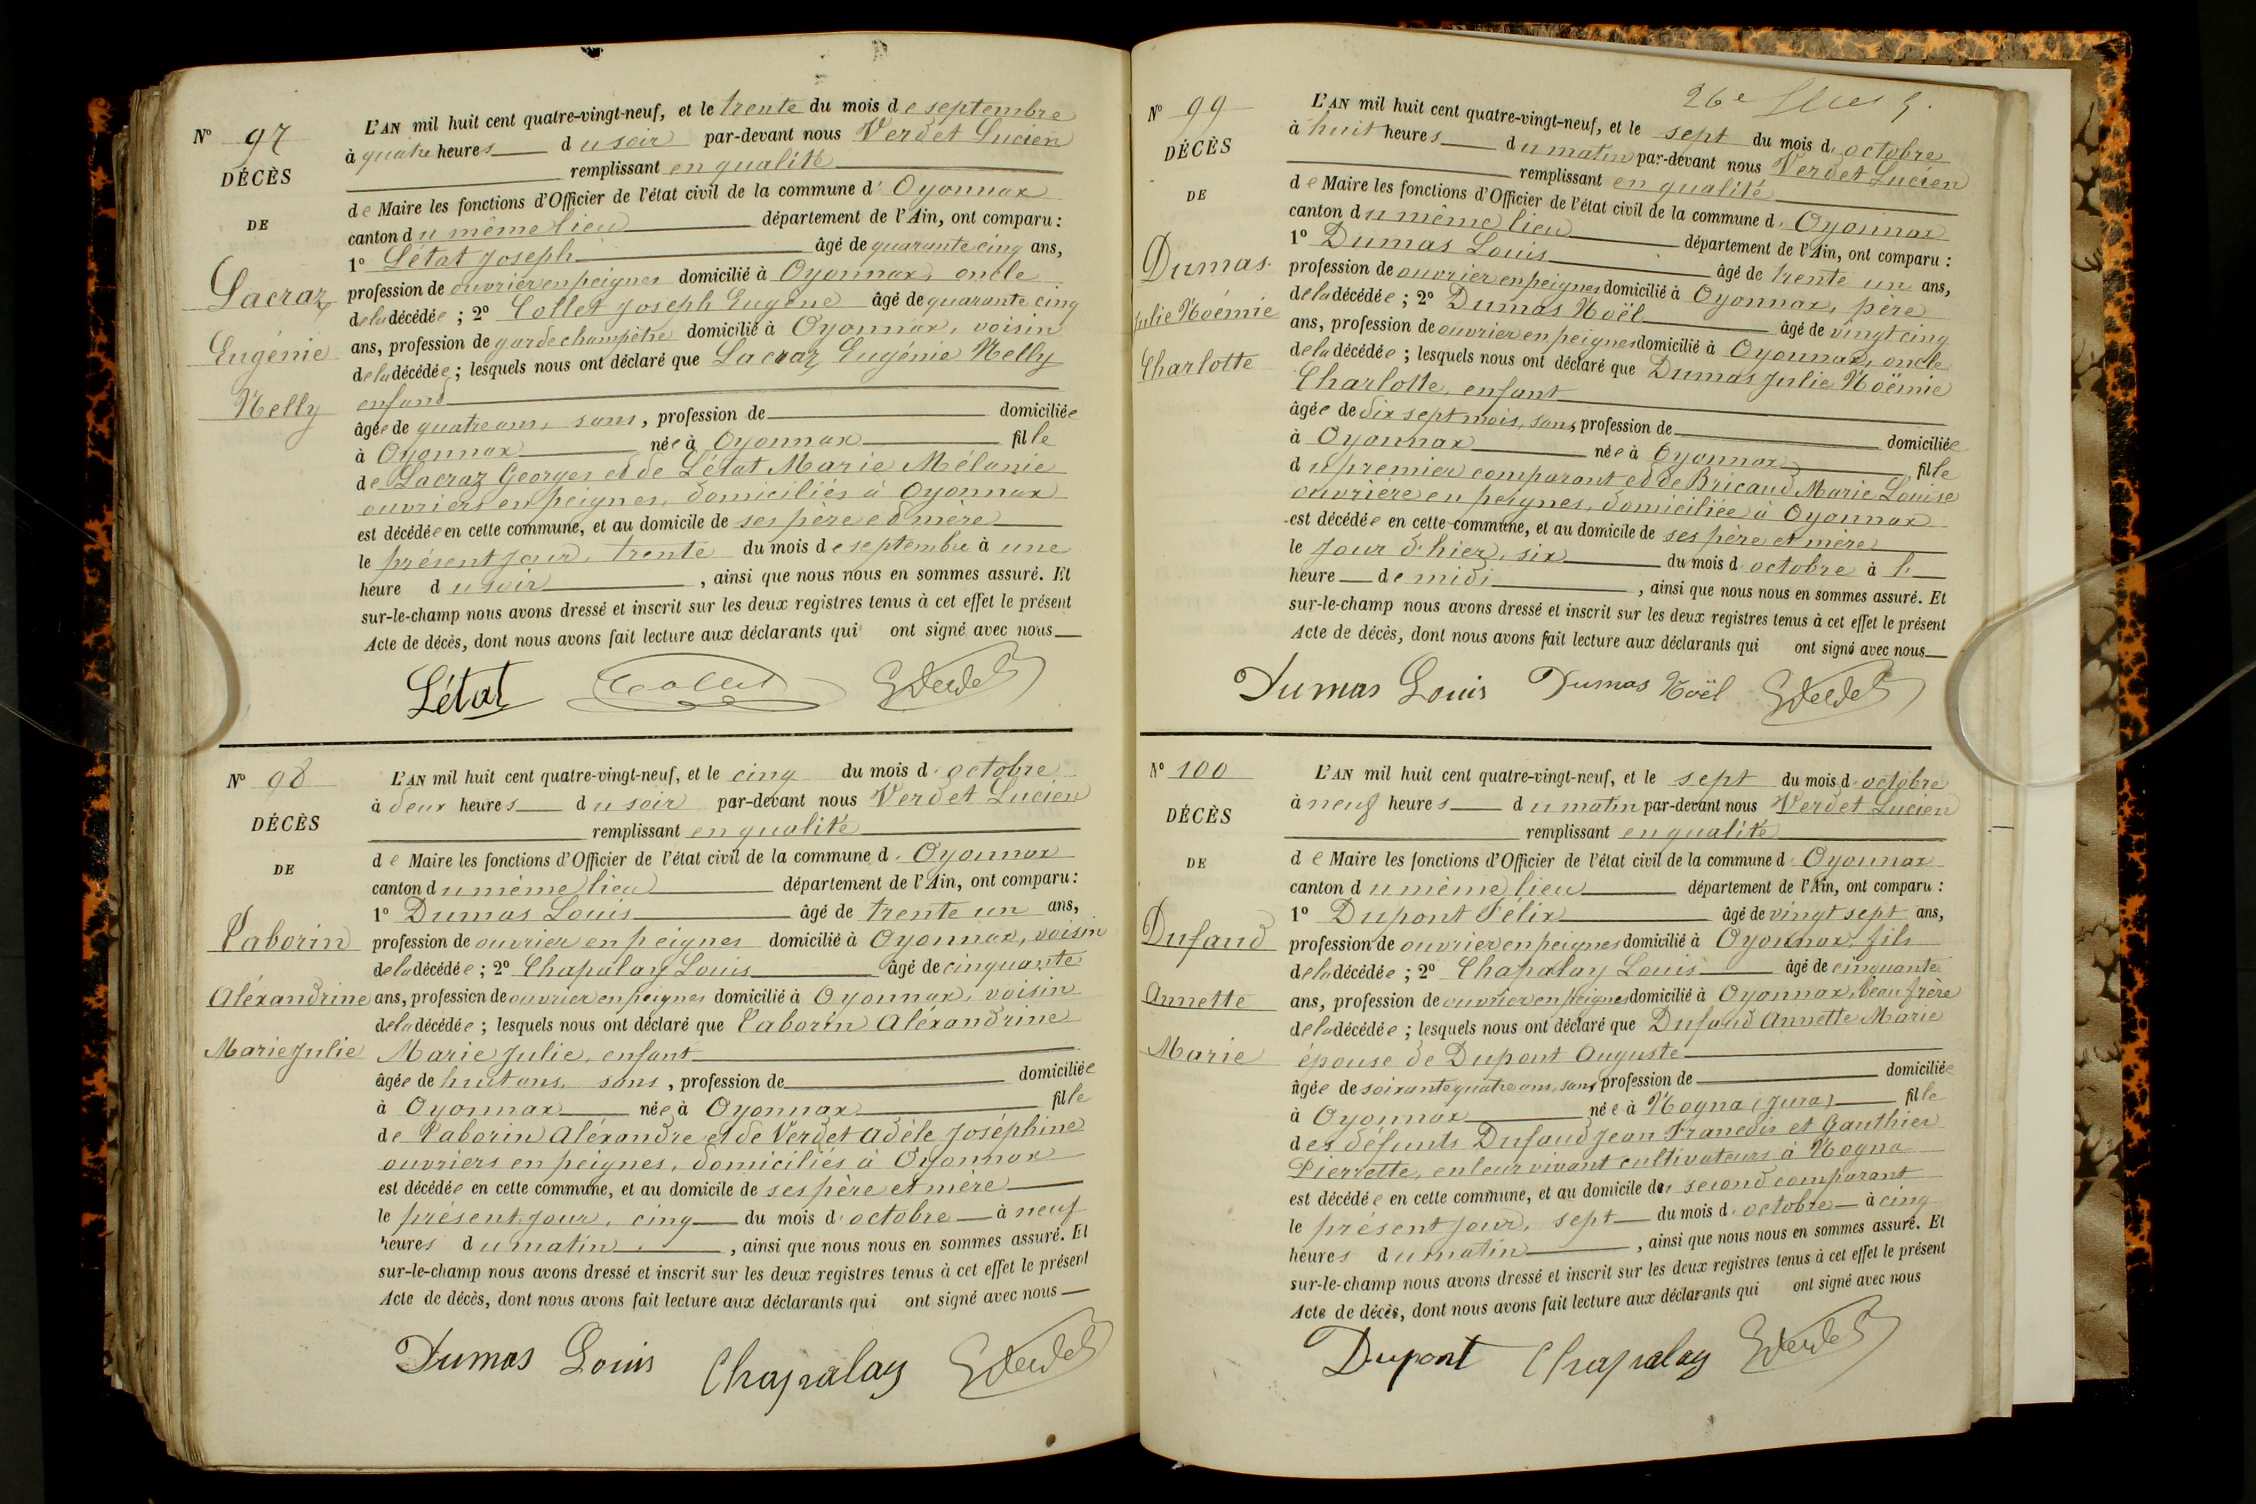 N° 97
DÉCÈS
DE
Lacraz
Eugénie
Nelly
L'AN mil huit cent quatre-vingt-neuf, et le trente du mois de septembre
à quatre heures du soir par-devant nous Verdet Lucien
remplissant en qualité
de Maire les fonctions d'Officier de l'état civil de la commune d'Oyonnax
canton du même lieu département de l'Ain, ont comparu :
1° Létat Joseph âgé de quarante cinq ans,
profession de ouvrier en peignes domicilié à Oyonnax, oncle
de la décédée ; 2° Collet Joseph Eugène âgé de quarante cinq
ans, profession de garde champêtre domicilié à Oyonnax, voisin
de la décédée ; lesquels nous ont déclaré que Lacraz Eugénie Nelly
enfant
âgée de quatre ans, sans, profession de domiciliée
à Oyonnax née à Oyonnax fille
de Lacraz Georges et de Létat Marie Mélanie
ouvriers en peignes, domiciliés à Oyonnax
est décédée en cette commune, et au domicile de ses père et mère
le présent jour, trente du mois de septembre à une
heure du soir, ainsi que nous nous en sommes assuré. Et
sur-le-champ nous avons dressé et inscrit sur les deux registres tenus à cet effet le présent
Acte de décès, dont nous avons fait lecture aux déclarants qui ont signé avec nous
Létat Collet Verdet
N° 98
DÉCÈS
DE
Taborin
Aléxandrine
Marie Julie
L'AN mil huit cent quatre-vingt-neuf, et le cinq du mois d'octobre
à deux heures du soir par-devant nous Verdet Lucien
remplissant en qualité
de Maire les fonctions d'Officier de l'état civil de la commune d'Oyonnax
canton du même lieu département de l'Ain, ont comparu :
1° Dumas Louis âgé de trente un ans,
profession de ouvrier en peignes domicilié à Oyonnax, voisin
de la décédée ; 2° Chapalay Louis âgé de cinquante
ans, profession de ouvrier en peignes domicilié à Oyonnax, voisin
de la décédée ; lesquels nous ont déclaré que Taborin Aléxandrine
Marie Julie, enfant
âgée de huit ans, sans, profession de domiciliée
à Oyonnax née à Oyonnax fille
de Taborin Aléxandre et de Verdet Adèle Joséphine
ouvriers en peignes, domiciliés à Oyonnax
est décédée en cette commune, et au domicile de ses père et mère
le présent jour, cinq du mois d'octobre à neuf
heures du matin, ainsi que nous nous en sommes assuré. Et
sur-le-champ nous avons dressé et inscrit sur les deux registres tenus à cet effet le présent
Acte de décès, dont nous avons fait lecture aux déclarants qui ont signé avec nous
Dumas Louis Chapalay Verdet
26e
N° 99
DÉCÈS
DE
Dumas
Julie Noémie
Charlotte
L'AN mil huit cent quatre-vingt-neuf, et le sept du mois d'octobre
à huit heures du matin par-devant nous Verdet Lucien
remplissant en qualité
de Maire les fonctions d'Officier de l'état civil de la commune d'Oyonnax
canton du même lieu département de l'Ain, ont comparu :
1° Dumas Louis âgé de trente un ans,
profession de ouvrier en peignes domicilié à Oyonnax, père
de la décédée ; 2° Dumas Noël âgé de vingt cinq
ans, profession de ouvrier en peignes domicilié à Oyonnax, oncle
de la décédée ; lesquels nous ont déclaré que Dumas Julie Noëmie
Charlotte, enfant
âgée de dix sept mois, sans, profession de domiciliée
à Oyonnax née à Oyonnax fille
du premier comparant et de Bricaud Marie Louise
ouvrière en peignes, domiciliée à Oyonnax
est décédée en cette commune, et au domicile de ses père et mère
le jour d'hier, six du mois d'octobre à l'
heure de midi, ainsi que nous nous en sommes assuré. Et
sur-le-champ nous avons dressé et inscrit sur les deux registres tenus à cet effet le présent
Acte de décès, dont nous avons fait lecture aux déclarants qui ont signé avec nous
Dumas Louis Dumas Noël Verdet
N° 100
DÉCÈS
DE
Dufaud
Annette
Marie
L'AN mil huit cent quatre-vingt-neuf, et le sept du mois d'octobre
à neuf heures du matin par-devant nous Verdet Lucien
remplissant en qualité
de Maire les fonctions d'Officier de l'état civil de la commune d'Oyonnax
canton du même lieu département de l'Ain, ont comparu :
1° Dupont Félix âgé de vingt sept ans,
profession de ouvrier en peignes domicilié à Oyonnax, fils
de la décédée ; 2° Chapalay Louis âgé de cinquante
ans, profession de ouvrier en peignes domicilié à Oyonnax, beau frère
de la décédée ; lesquels nous ont déclaré que Dufaud Annette Marie
épouse de Dupont Auguste
âgée de soixante quatre ans, sans, profession de domiciliée
à Oyonnax née à Nogna (Jura) fille
des défunts Dufaud Jean Francois et Gauthier
Pierrette, en leur vivant cultivateurs à Nogna
est décédée en cette commune, et au domicile du second comparant
le présent jour, sept du mois d'octobre à cinq
heures du matin, ainsi que nous nous en sommes assuré. Et
sur-le-champ nous avons dressé et inscrit sur les deux registres tenus à cet effet le présent
Acte de décès, dont nous avons fait lecture aux déclarants qui ont signé avec nous
Dupont Chapalay Verdet